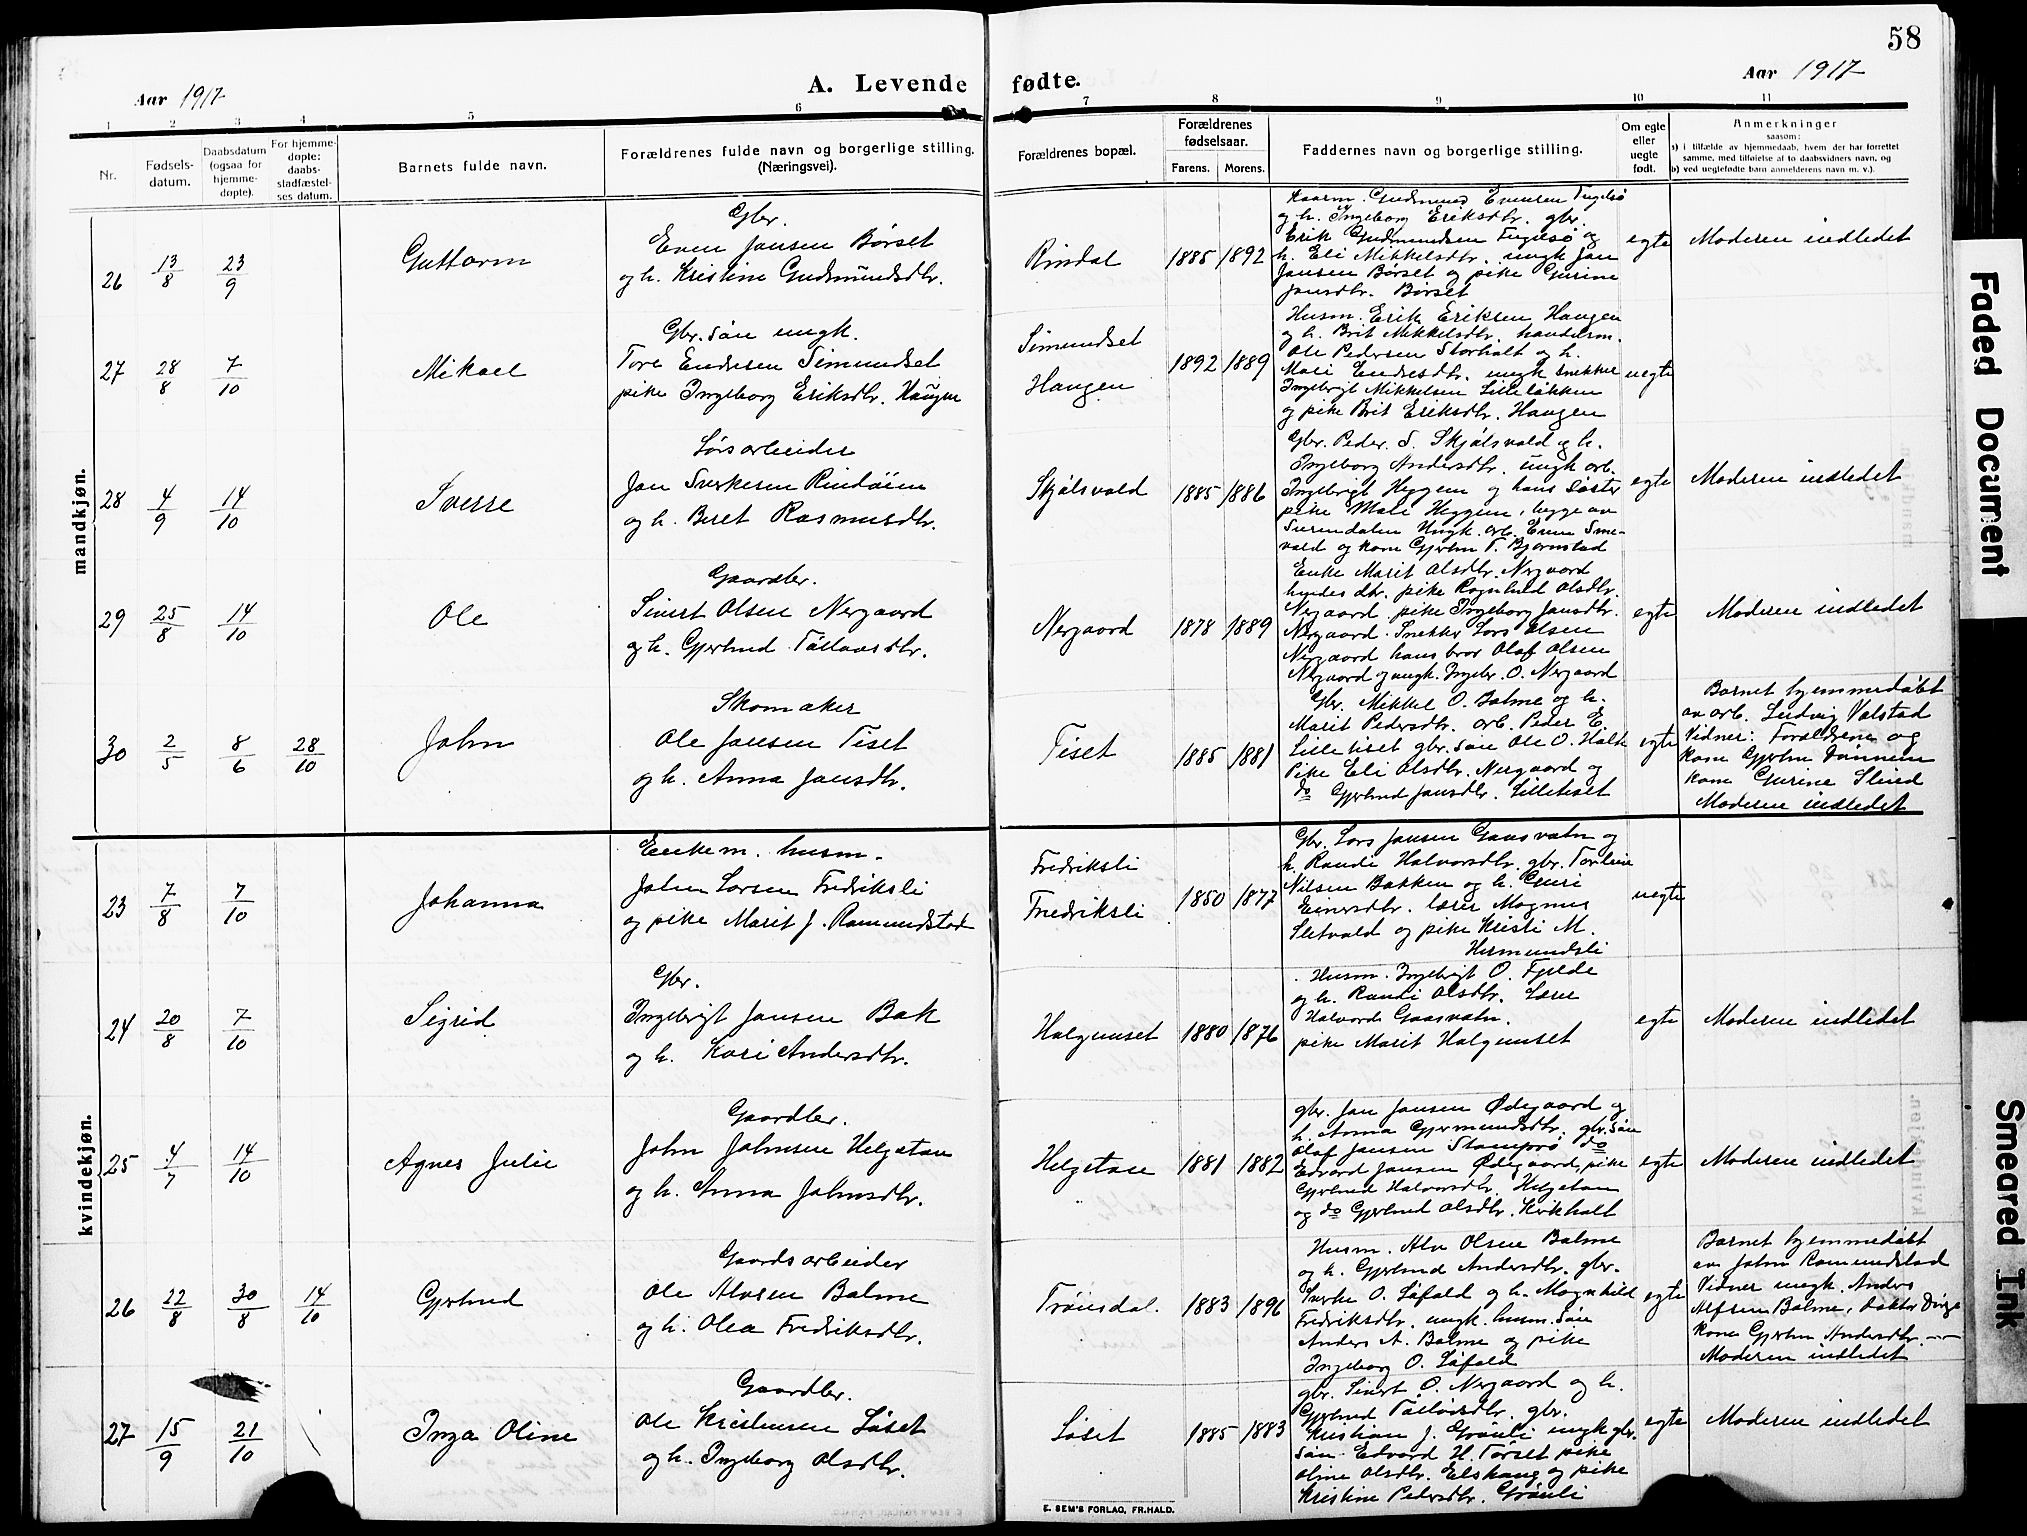 58
Aar 1917
A. Levende fødte.
Aar 1917
1 2 3 4 5 6 7 8 9 10 11
Nr.
Fødsels-
datum.
Daabsdatum
(ogsaa for
hjemme-
døpte).
For hjemme-
døpte:
daabs-
stadfæstel-
ses datum.
Barnets fulde navn.
Forældrenes fulde navn og borgerlige stilling.
(Næringsvei).
Forældrenes bopæl.
Forældrenes
fødselsaar.
Farens. Morens.
Faddernes navn og borgerlige stilling.
Om egte
eller
uegte
født.
Anmerkninger
saasom:
a) i tilfælde av hjemmedaab, hvem der har forrettet
samme, med tilføielse af to daabsvidners navn, og
b) ved uegtefødte barn anmelderens navn m. v.).
mandkjøn.
26 13/8 23/9
Guttorm
Gbr.
Even Jansen Børset
og h. Kristine Gudmundsdtr.
Rindal
1885 1892
Kaarm. Gudmund Evensen Fugelsø
og h. Ingeborg Eriksdtr. gbr.
Erik Gudmundsen Fugelsø og
h. Eli Mikkelsdtr. ungk Jan
Jansen Børset og pike Gurine
Jansdtr. Børset
egte
Moderen indledet
27 28/8 7/10
Mikael
Gbr. søn ungk.
Tore Endresen Simundset
pike Ingeborg Eriksdtr. Haugen
Simundset
Haugen
1892 1889
Husm. Erik Eriksen Haugen
og h. Brit Mikkelsdtr. handelsm.
Ole Pedersen Storholt og h.
Mali Endresdtr. ungk snekker
Ingebrigt Mikkelsen Lilleløkken
og pike Brit Eriksdtr. Haugen
uegte
28 4/9 14/10
Sverre
Løsarbeider
Jan Sverkesen Rindøien
og h. Beret Rasmusdtr.
Skjølsvold
1885 1886
Gbr. Peder S. Skjølsvold og h.
Ingeborg Andersdtr. ungk arb.
Ingebrigt Heggem og hans søster
pike Mali Heggem, begge av
Surendalen Ungk. arb. Even Sme-
vold og kone Gjertru T. Bjørnstad
egte
Moderen indledet
29 25/8 14/10
Ole
Gaardbr.
Sivert Olsen Nergaard
og h. Gjertrud Tøllovsdtr.
Nergaard
1878 1889
Enke Marit Olsdtr. Nergaard
hendes dtr. pike Ragnhild Olsdtr.
Nergaard, pike Ingeborg Jansdtr.
Nergaard. Snekker Lars Olsen
Nergaard hans bror Olaf Olsen
Nergaard og ungk. Ingebr. O. Nergaard
egte
Moderen indledet
30 2/5 8/6 28/10
John
Skomaker
Ole Jansen Tiset
og h. Anna Jansdtr.
Tiset
1885 1881
Gbr. Mikkel O. Bolme og h.
Marit Pedersdtr. arb. Peder E.
Lilletiset gbr. søn Ole O. Holte
Pike Eli Olsdtr. Nergaard og
do Gjertrud Jansdtr. Lilletiset
egte
Barnet hjemmedøbt
av arb. Ludvig Volstad
Vidner: Forældrene og
kone Gjertru Dønnem
kone Gurine Sliud
Moderen indledet
kvindekjøn.
23 7/8 7/10
Johanna
Enkem. husm.
John Larsen Fredriksli
og pike Marit J. Romundstad
Fredriksli
Fredriksli
1850 1877
Gbr. Lars Jansen Gaasvatn og
h. Randi Halvorsdtr. gbr. Torleiv
Nilsen Bakken og h. Guri
Einersdtr. lærer Magnus
Sletvold og pike Kristi M.
Hermundsli
uegte
24 20/8 7/10
Sigrid
Gbr.
Ingebrigt Jansen Bak
og h. Kari Andersdtr.
Halgunset
1880 1876
Husm. Ingebrigt O. Fjelde
og h. Randi Olsdtr. Lærer
Halvord Gaasvatn.
pike Marit Halgunset
egte
Moderen indledet
25 4/7 14/10
Agnes Julie
Gaardbr.
John Johnsen Helgetun
og h. Anna Johnsdtr.
Helgetun
1881 1882
gbr. Jan Jansen Ødegaard og
h. Anna Gjermundsdtr. gbr. søn
Olaf Jansen Stomprø do
Edvard Jansen Ødegaard, pike
Gjertrud Halvorsdtr. Helgetun
og do Gjertrud Olsdtr. Kirkholt
egte
Moderen indledet
26 22/8 30/8 14/10
Gjertrud
Gaardsarbeider
Ole Alvsen Bolme
og h. Olea Fredriksdtr.
Trønsdal.
1883 1896
Husm. Alv Olsen Bolme
og h. Gjertrud Andersdtr. gbr.
Sverke O. Løfald og h. Magnhild
Fredriksdtr. ungk. husm. søn
Anders A. Bolme og pike
Ingeborg O. Løfald
egte
Barnet hjemmedøbt
av John Romundstad
Vidner ungk. Anders
Alfsen Bolme, doktor
kone Gjertru Andersdtr. —
Moderen indledet
27 15/9 21/10
Inga Oline
Gaardbr.
Ole Kristensen Løset
og h. Ingeborg Olsdtr.
Løset
1885 1883
gbr. Sivert O. Nergaard og h.
Gjertrud Tølløvsdtr. gbr.
Kristian J. Grønli ungk gbr.
søn. Edvard H. Tørset pike
Oline Olsdtr. Elshaug og pike
Kristine Pedersdtr. Grønli
egte
Moderen indledet
E. SEM'S FORLAG, FR.HALD.
Faded Document
Smeared Ink